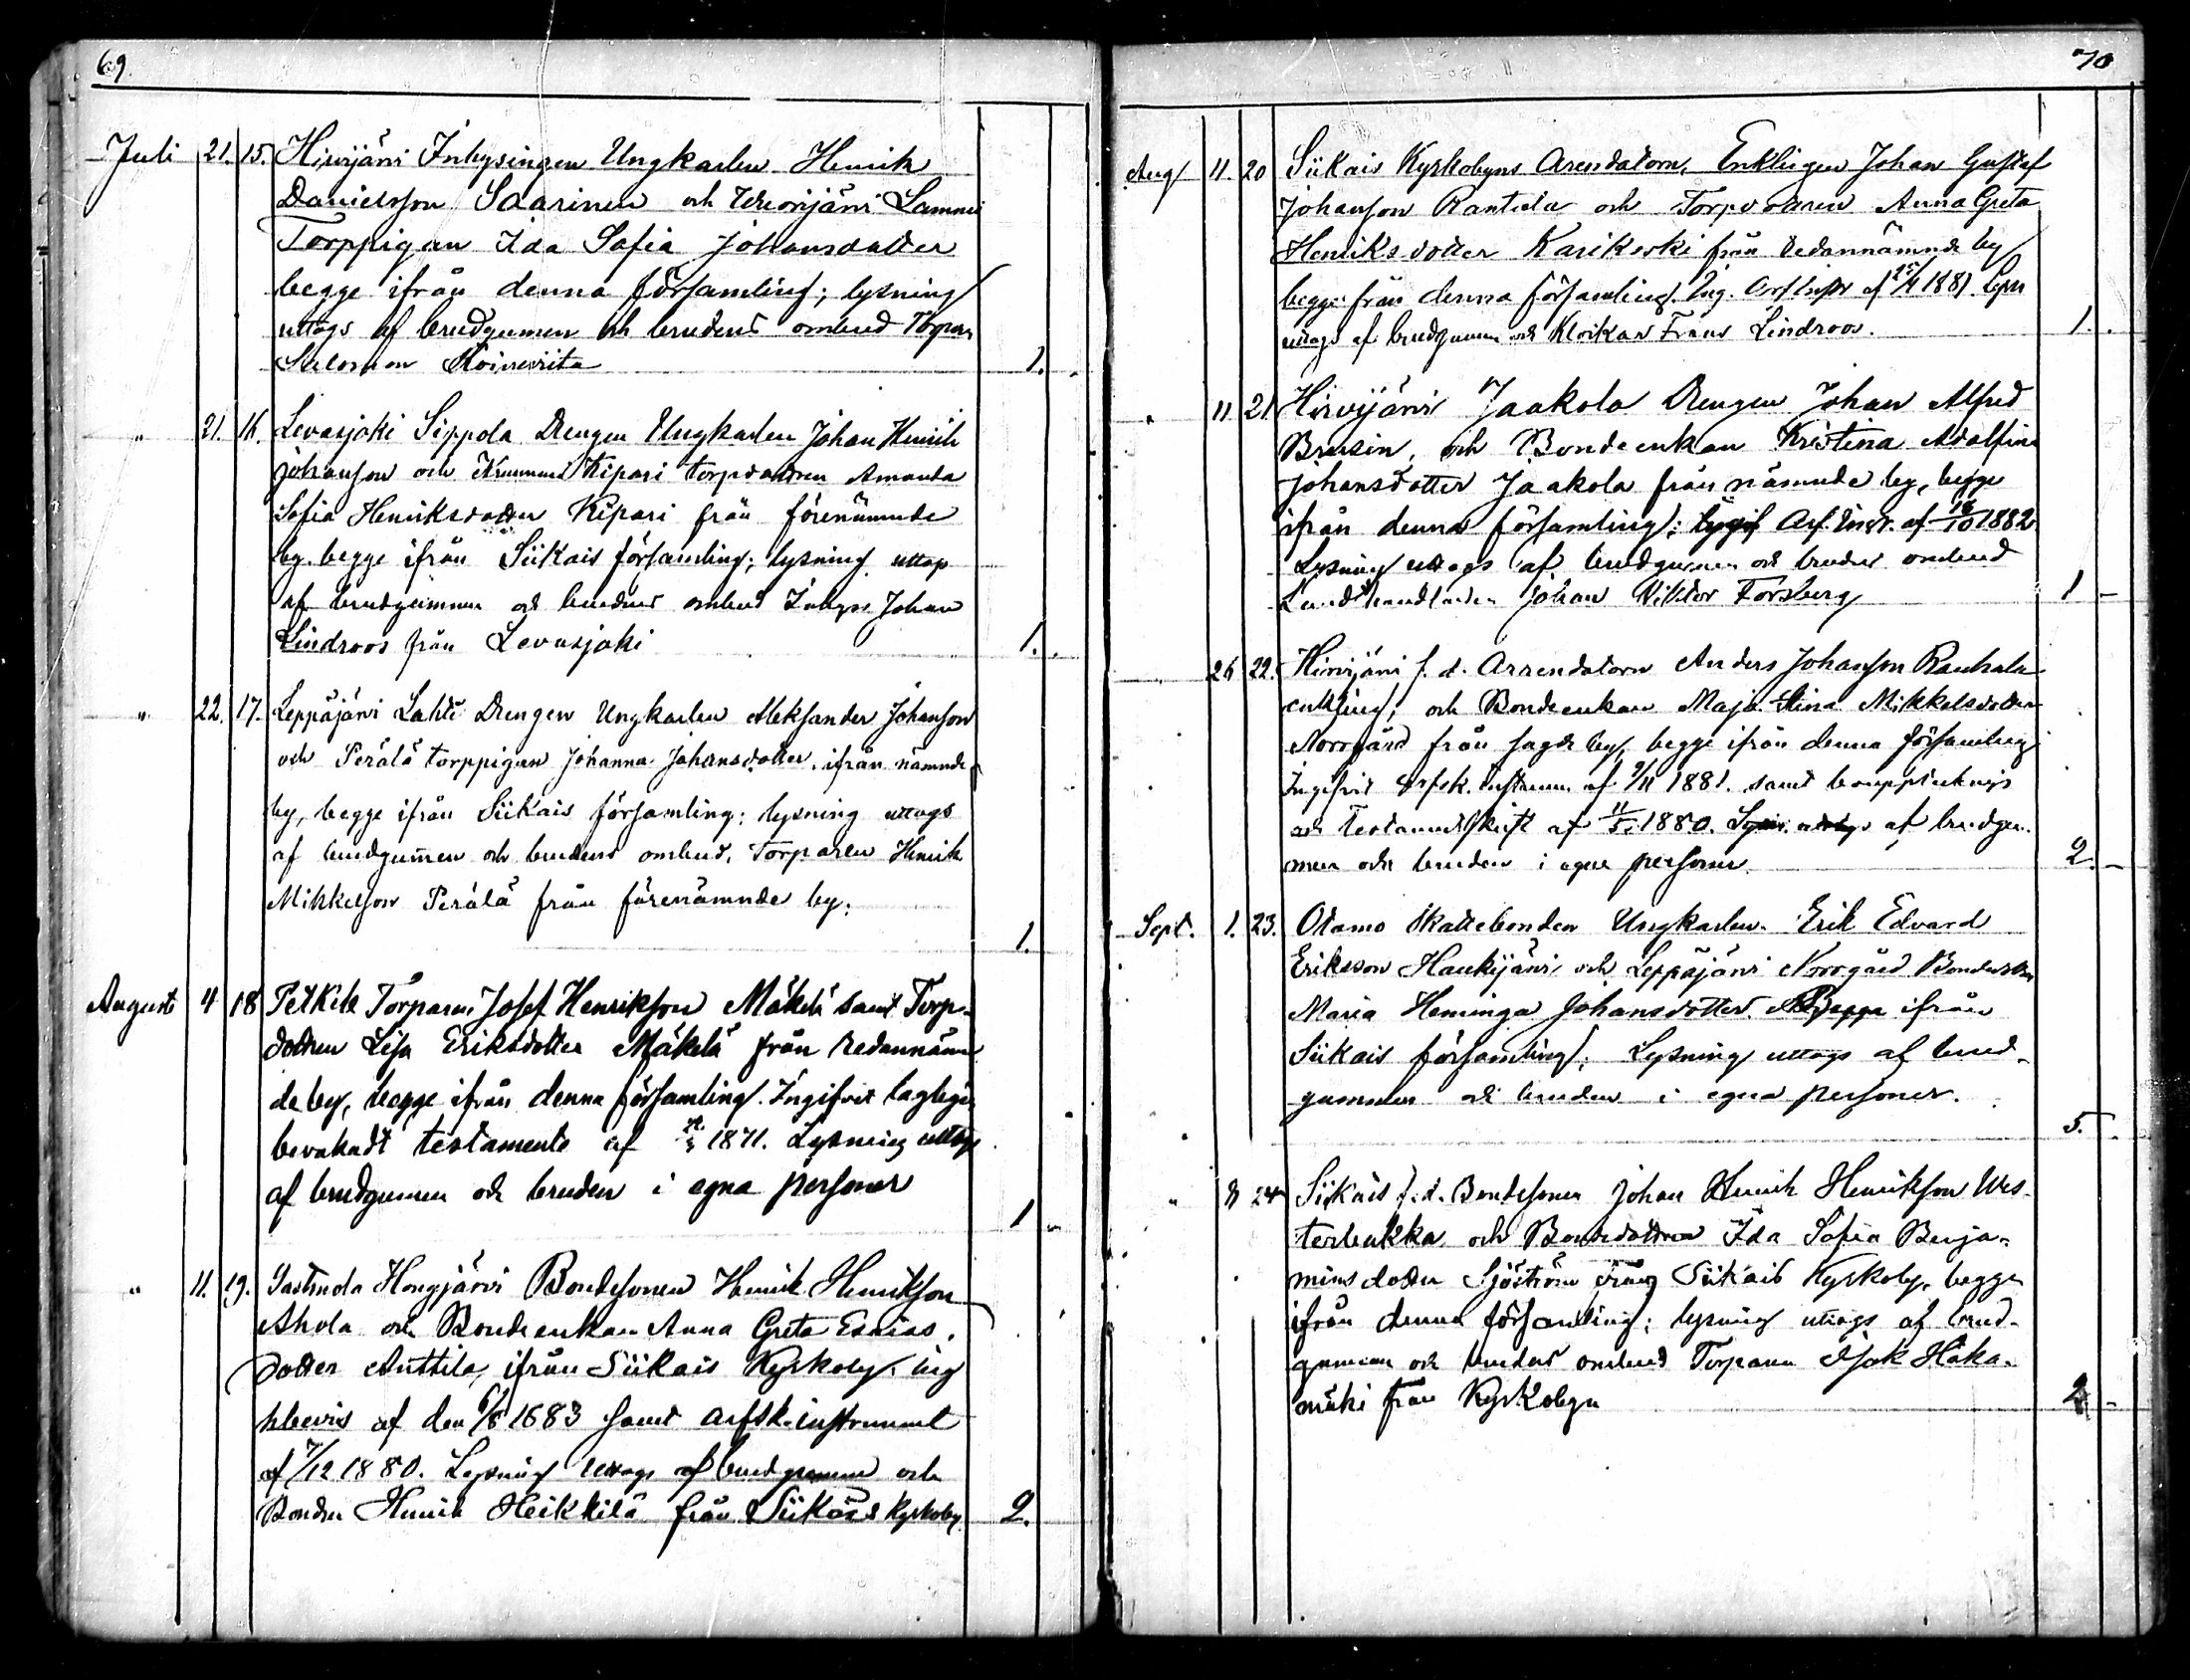 69.
Juli 21. 15. Hirvijärvi Inhysingen Ungkarlen Henrik
Danielsson Saarinen och Hirvijärvi Lammi
Torppigan Ida Sofia Johansdotter
begge ifrån denna församling; lysning
uttogs af brudgumen och brudens ombud Torparn
Salomon Koivuviita 1.
" 21. 16. Levasjoki Sippola Drengen Ungkarlen Johan Henrik
Johanson och Kipari torpdottren Amanda
Sofia Henriksdotter Kipari från förenämnde
by. begge ifrån Siikais församling; lysning uttogs
af brudgummen och brudens ombud Inhys. Johan
Lindroos från Levasjoki 1.
" 22. 17. Leppäjärvi Lahti Drengen Ungkarlen Aleksander Johanson
och Perälä torppigan Johanna Johansdotter ifrån nämnde
by, begge ifrån Siikais församling; lysning uttogs
af brudgum̄en och brudens ombud, Torparen Henrik
Mikkelson Perälä från förenämnde by. 1.
Augusti 4 18 Petkele Torparen Josef Henrikson Mäkelä samt Torp-
dottren Lisa Eriksdotter Mäkelä från redannämn
de by, begge ifrån denna församling. Ingifvit lagligen
bevakadt testamente af 1871. Lysning uttogs
af brudgummen och bruden i egna personer 1
" 11. 19. Sastmola Hongjärvi Bondesonen Henrik Henrikson
Ahola och Bondeenkan Anna Greta Esaias-
dotter Anttila, ifrån Siikais Kyrkoby. ing
hbevis af den 6/8 1883 samt arfsk. instrument
af 7/12 1880. Lysning uttogs af brudgumen och
Bonden Henrik Heikkilä från Siikais Kyrkoby. 2.
70
Aug 11. 20 Siikais Kyrkobyns Arendatorn, Enklingen Johan Gustaf
Johanson Rantala och Torpdottren Anna Greta
Henriksdotter Karikoski från redannämnde by
begge från denna församling. Ing. Arfinstr af 25/11 1881. Lysn
uttogs af brudgumen och Klockar Frans Lindroos. 1.
" 11 21. Hirvijärvi Jaakola Drengen Johan Alfred
Brusin, och Bondeenkan Kristina Adolfina
Johansdotter Jaakola från nämnde by, begge
ifrån denna församling; Arf. Instr. af 18/10 1882
Lysning uttogs af brudgumen och brudens ombud
Landthandlanden Johan Viktor Forsberg 1 -
26 22. Hirvijärvi f. d. Arrendatorn Anders Johanson Rauhala
enkling, och Bondeenkan Maja Stina Mikkelsdotter
Norrgård från sagde by, begge ifrån denna församling
Ingifvit arfsk. instrum. af 9/11 1881. samt bouppteckngs
och Testamentskrift af 11/5 1880. Lysn. uttogs af brudgu-
men och bruden i egne personer. 2. -
Sept. 1. 23. Otamo Skattebonden Ungkarlen Erik Edvard
Eriksson Haukijärvi och Leppäjärvi Norrgård Bondedotter
Maria Heminga Johansdotter. Begge ifrån
Siikais församling; Lysning uttogs af brud-
gummen och bruden i egna personer. 5.
" 8 24 Siikais f. d. Bondesonen Johan Henrik Henrikson Wes-
terbukka och Bondedottren Ida Sofia Benja-
mins dotter Sjöström från Siikais Kyrkoby, begge
ifrån denna församling; lysning uttogs af brud-
gumen och brudens ombud Torparen Isak Haka-
mäki från Kyrkobyn 2 -